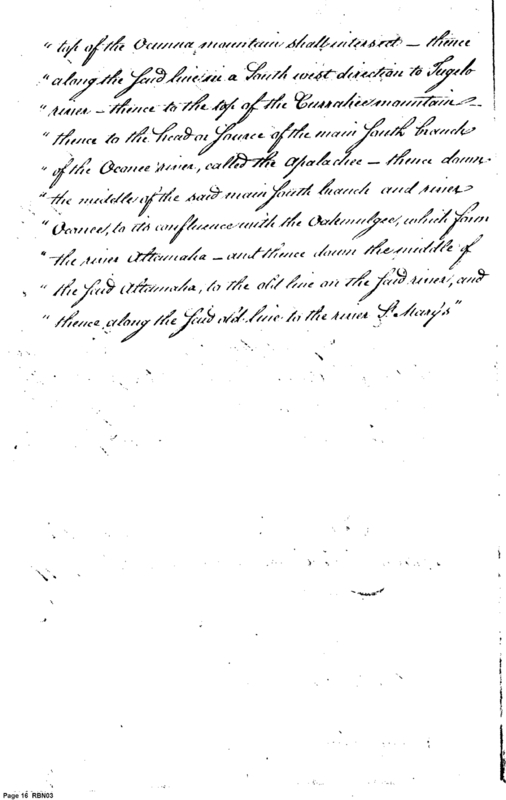 " top of the Ocunna mountain shall intersect — thence
" along the said line in a South west direction to Tugelo
" river — thence to the top of the Currahee mountain —
" thence to the head or source of the main South branch
" of the Oconee river, called the Apalachee — thence down
" the middle of the said main South branch and river
" Oconee, to its confluence with the Oakmulgee, which form
" the river Altamaha — and thence down the middle of
" the said Altamaha, to the old line on the said river, and
" thence along the said old line to the river St. Mary's"
Page 16 RBN03